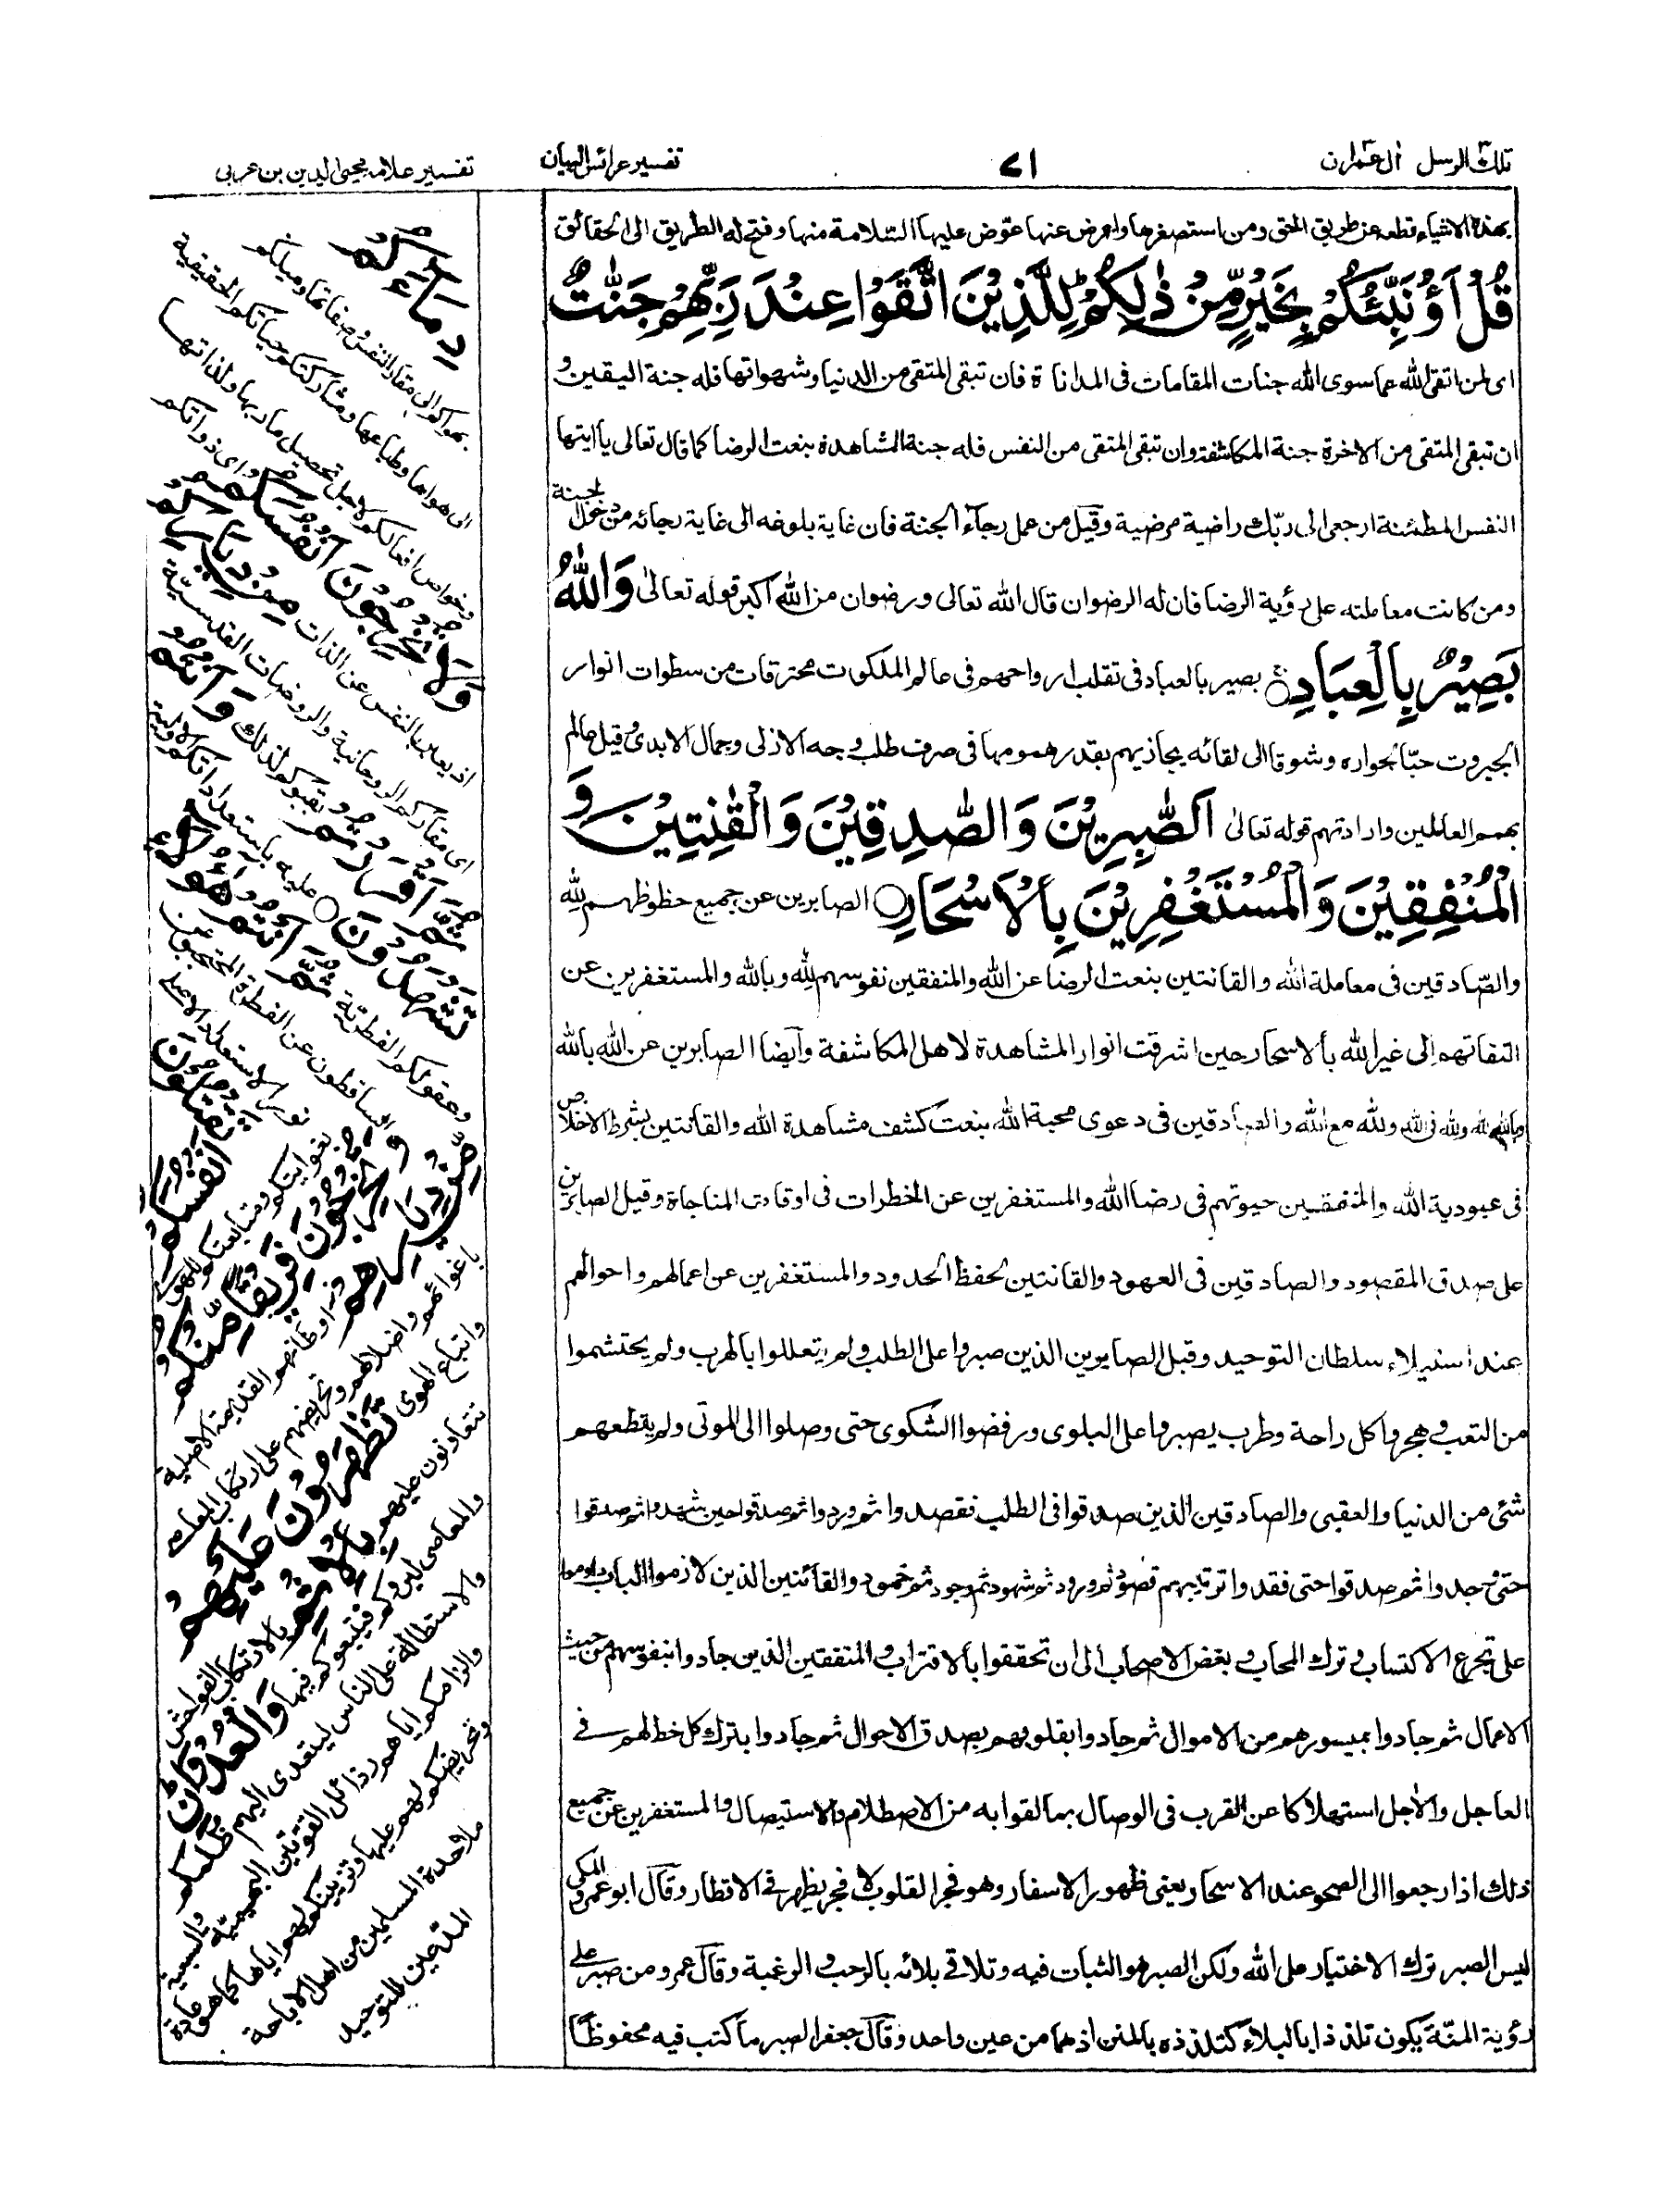 تلك الرسل ال عمران
٧١
تفسير عرائس البيان
تفسير علامه محيى الدين بن عربى
بهذه الاشياء قطعه عن طريق الحق ومن استصغرها واعرض عنها عوّض عليها السّلامة منها وفتح له الطريق الى الحقائق
قُلْ اَؤُنَبِّئُكُمْ بِخَيْرٍ مِّنْ ذٰلِكُمْ لِلَّذِيْنَ اتَّقَوْا عِنْدَ رَبِّهِمْ جَنّٰتٌ
اى لمن اتقى الله عما سوى الله جنات المقامات فى المداناة فان تبقى المتقى من الدنيا وشهواتها فله جنة اليقين و
ان تبقى المتقى من الاخرة جنة المكاشفة وان تبقى المتقى من النفس فله جنة المشاهدة بنعت الرضا كما قال تعالى يا ايتها
النفس المطمئنة ارجعى الى ربّك راضية مرضية وقيل من عمل رجآء الجنة فان غاية بلوغه الى غاية رجائه من دخول الجنة
ومن كانت معاملته على رؤية الرضا فان له الرضوان قال الله تعالى ورضوان من الله اكبر قوله تعالى وَاللّٰهُ
بَصِيْرٌ بِالْعِبَادِ بصير بالعباد فى تقلب ارواحهم فى عالم الملكوت محترقات من سطوات انوار
الجبروت حبّا بجواره وشوقا الى لقائه يجازيهم بقدر همومها فى صرف طلب وجه الازلى وجمال الابدى وقيل عالم
بهمم العاملين وارادتهم قوله تعالى اَلصّٰبِرِيْنَ وَالصّٰدِقِيْنَ وَالْقٰنِتِيْنَ وَ
الْمُنْفِقِيْنَ وَالْمُسْتَغْفِرِيْنَ بِالْاَسْحَارِ الصابرين عن جميع حظوظهم لله
والصّادقين فى معاملة الله والقانتين بنعت الرضا عن الله والمنفقين نفوسهم لله وبالله والمستغفرين عن
التفاتهم الى غير الله بالاسحار حين اشرقت انوار المشاهدة لاهل المكاشفة وايضا الصابرين عن الله بالله
ولله مع الله والصادقين فى دعوى محبة الله بنعت كشف مشاهدة الله والقانتين بشرط الاخلاص
فى عبودية الله والمنفقين حيوتهم فى رضا الله والمستغفرين عن الخطرات فى اوقات المناجاة وقيل الصابرين
على صدق المقصود والصادقين فى العهود والقانتين لحفظ الحدود والمستغفرين عن اعمالهم واحوالهم
عند استيلاء سلطان التوحيد وقيل الصابرين الذين صبروا على الطلب ولم يتعللوا بالهرب ولم يحتشموا
من التعب وهجروا كل راحة وطرب يصبروا على البلوى ورفضوا الشكوى حتى وصلوا الى المولى ولم يقطعهم
شئى من الدنيا والعقبى والصادقين الذين صدقوا فى الطلب فقصدوا ثم وردوا ثم صدقوا حين شهدوا ثم صدقوا
حتى وجدوا ثم صدقوا حتى فقدوا ترتيبهم قصود ثم ورود ثم شهود ثم وجود ثم خمود والقانتين الذين لازموا الباب وداوموا
على تجرع الاكتساب وترك المحاب وبغض الاصحاب الى ان تحققوا بالاقتراب والمنفقين الذين جادوا بنفوسهم من حيث
الاعمال ثم جادوا بميسورهم من الاموال ثم جادوا بقلوبهم بصدق الاحوال ثم جادوا بترك كل حظ لهم فى
العاجل والاجل استهلاكا عن القرب فى الوصال بما لقوا به من الاصطلام والاستيصال والمستغفرين عن جميع
ذلك اذا رجعوا الى الصحو عند الاسحار يعنى ظهور الاسفار وهو فجر القلوب لا فجر يظهر فى الاقطار وقال ابو عمرو المكى
ليس الصبر ترك الاختيار على الله ولكن الصبر هو الثبات فيه وتلاقى بلائه بالرحب والرغبة وقال عمرو من صبر على
رؤية المنّة يكون تلذذا بالبلاء كتلذذه بالمنن اذهما من عين واحد وقال جعفر الصبر ما كتب فيه محفوظًا
دِمَآءَكُمْ
بهواكم الى مقار النفس وميلكم
الى هواها وطباعها ومشارككم حياتكم الحقيقية
وخواص افعالكم لاجل تحصيل ماربها ولذاتها
وَلَا تُخْرِجُوْنَ اَنْفُسَكُمْ اى ذواتكم
مِنْ دِيَارِكُمْ
اى مقاركم الروحانية والروضات القدسيّة
ثُمَّ اَقْرَرْتُمْ بقبولكم لذلك وَاَنْتُمْ
تَشْهَدُوْنَ عليه باستعداداتكم الاولية
وعقولكم الفطريّة ثُمَّ اَنْتُمْ هٰؤُلَآءِ
الساقطون عن الفطرة المحتجبون عن
نور الاستعداد الاصلى
تَقْتُلُوْنَ اَنْفُسَكُمْ
بغوايتكم ومتابعتكم للهوى
وَتُخْرِجُوْنَ فَرِيْقًا مِّنْكُمْ
مِّنْ دِيَارِهِمْ اوطانهم القديمة الاصلية
باغوائهم واضلالهم وتحريضهم على ارتكاب المعاصى
واتباع الهوى تَظٰهَرُوْنَ عَلَيْهِمْ
تتعاونون عليهم بِالْاِثْمِ بالارتكاب الفواحش
والمعاصى ليروكم فيتبعوكم فيها وَالْعُدْوَانِ
والاستطالة على الناس ليتعدى اليهم ظلمكم
والزامكم اياهم رذائل القوتين البهيمية والسبعية
وتحريضكم لهم عليها وتزيينكم لهم اياها كما هو عادة
ملاحدة المسلمين من اهل الاباحة
المدّعين للتوحيد